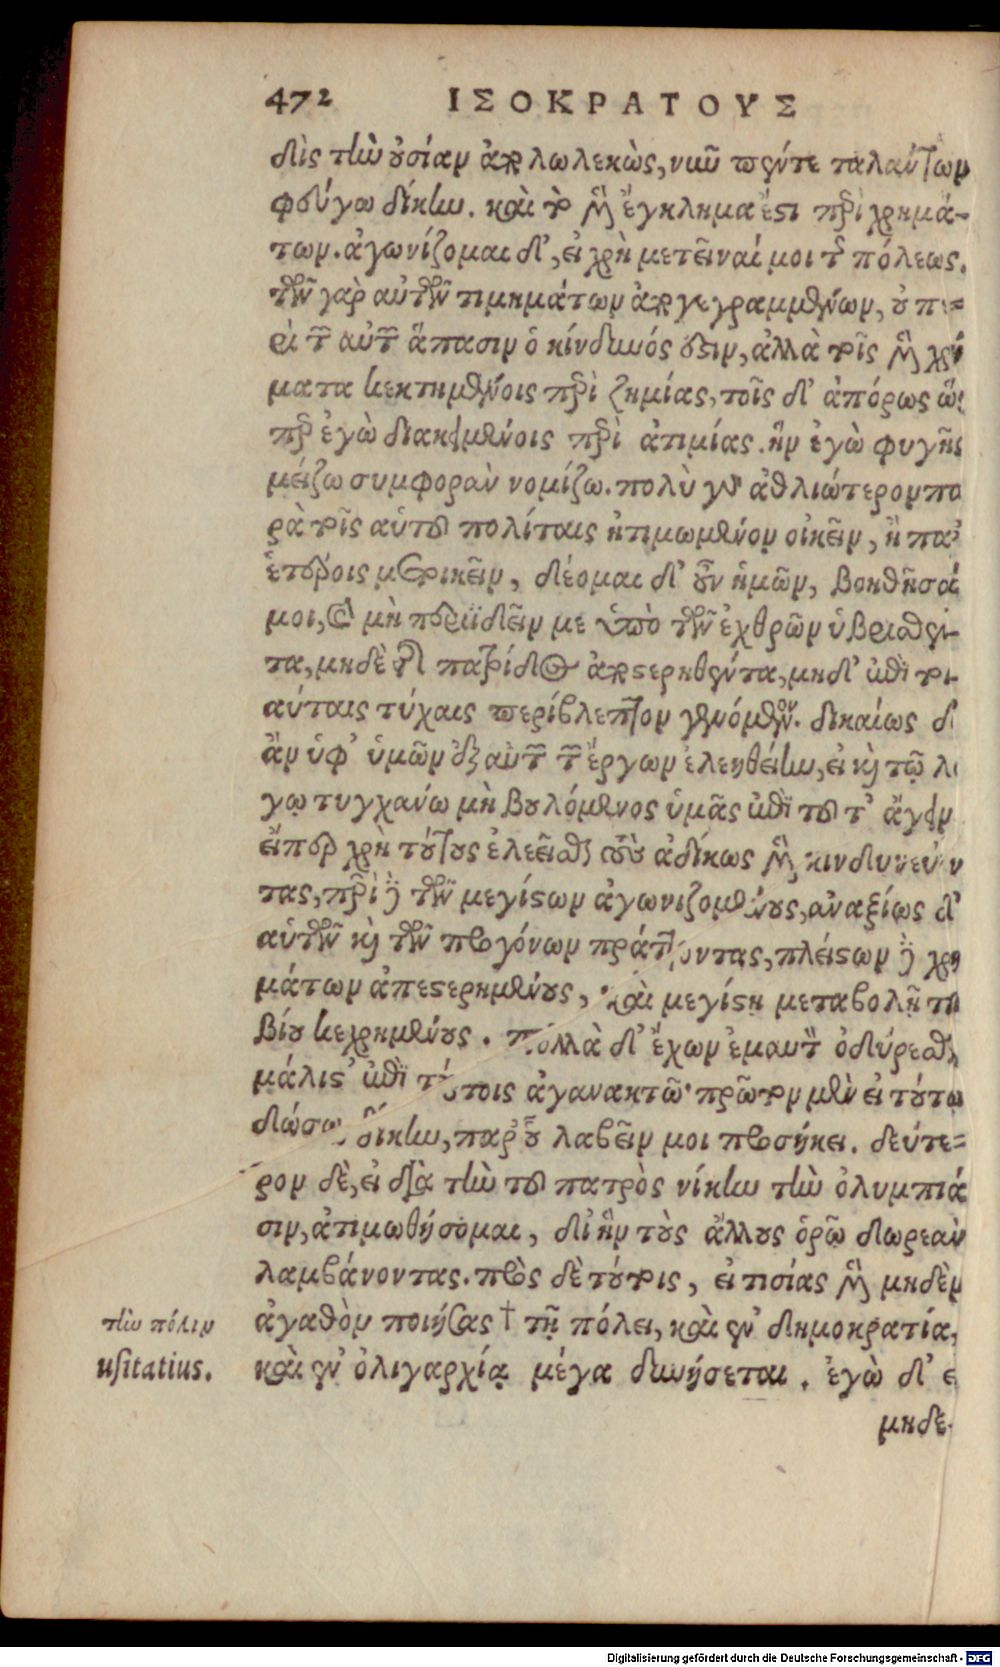 472 ΙΣΟΚΡΑΤΟΥΣ
δὶς τὴν οὐσίαν ἀπολωλεκὼς, νυνὶ πέντε ταλάντων
φεύγω δίκην. καὶ τὸ μὲν ἔγκλημα ἐστι περὶ χρημά-
των. ἀγωνίζομαι δ', εἰ χρὴ μετεῖναί μοι τῆς πόλεως.
τῶν γὰρ αὐτῶν τιμημάτων ἀπογεγραμμένων, οὐ πε=
ρὶ τῶν αὐτῶν ἅπασιν ὁ κίνδυνός ἐστιν, ἀλλὰ τοῖς μὲν χρή
ματα κεκτημένοις περὶ ζημίας, τοῖς δ' ἀπόρως ὥσ
περ ἐγὼ διακειμένοις περὶ ἀτιμίας. ἣν ἐγὼ φυγῆς
μείζω συμφορὰν νομίζω. πολὺ γὰρ ἀθλιώτερον πα
ρὰ τοῖς αὑτοῦ πολίταις ἠτιμωμένον οἰκεῖν, ἢ παρ'
ἑτέροις μετοικεῖν, δέομαι δ' οὖν ἡμῶν, βοηθῆσαί
μοι, καὶ μὴ περιϊδεῖν με ὑπὸ τῶν ἐχθρῶν ὑβρισθέν-
τα, μηδὲ τῆς πατρίδος ἀποστερηθέντα, μηδ' ἐπὶ τοι-
αύταις τύχαις περίβλεπτον γενόμενον. δικαίως δ'
ἂν ὑφ' ὑμῶν ἐξ αὐτῶν τῶν ἔργων ἐλεηθείην, εἰ καὶ τῷ λό
γῳ τυγχάνω μὴ βουλόμενος ὑμᾶς ἐπὶ τοῦτ' ἄγειν
εἴπερ χρὴ τούτους ἐλεεῖσθαι τοὺς ἀδίκως μὲν κινδυνεύον
τας, περὶ δὲ τῶν μεγίστων ἀγωνιζομένους, ἀναξίως δ'
αὑτῶν καὶ τῶν προγόνων πράττοντας, πλείστων δὲ χρη
μάτων ἀπεστερημένους, καὶ μεγίστῃ μεταβολῇ τοῦ
βίου κεχρημένους. πολλὰ δ' ἔχων ἐμαυτὸν ὀδύρεσθαι,
μάλιστ' ἐπὶ τούτοις ἀγανακτῶ· πρῶτον μὲν εἰ τούτῳ
δώσω δίκην, παρ' οὗ λαβεῖν μοι προσήκει. δεύτε=
ρον δὲ, εἰ διὰ τὴν τοῦ πατρὸς νίκην τὴν ὀλυμπιά
σιν, ἀτιμωθήσομαι, δι' ἣν τοὺς ἄλλους ὁρῶ δωρεὰν
λαμβάνοντας. πρὸς δὲ τούτοις, εἰ τισίας μὲν μηδὲν
ἀγαθὸν ποιήσας † τῇ πόλει, καὶ ἐν δημοκρατίᾳ,
καὶ ἐν ὀλιγαρχίᾳ μέγα δυνήσεται. ἐγὼ δ' εἰ
μηδε-
τὴν πόλιν
usitatius.
Digitalisierung gefördert durch die Deutsche Forschungsgemeinschaft - DFG